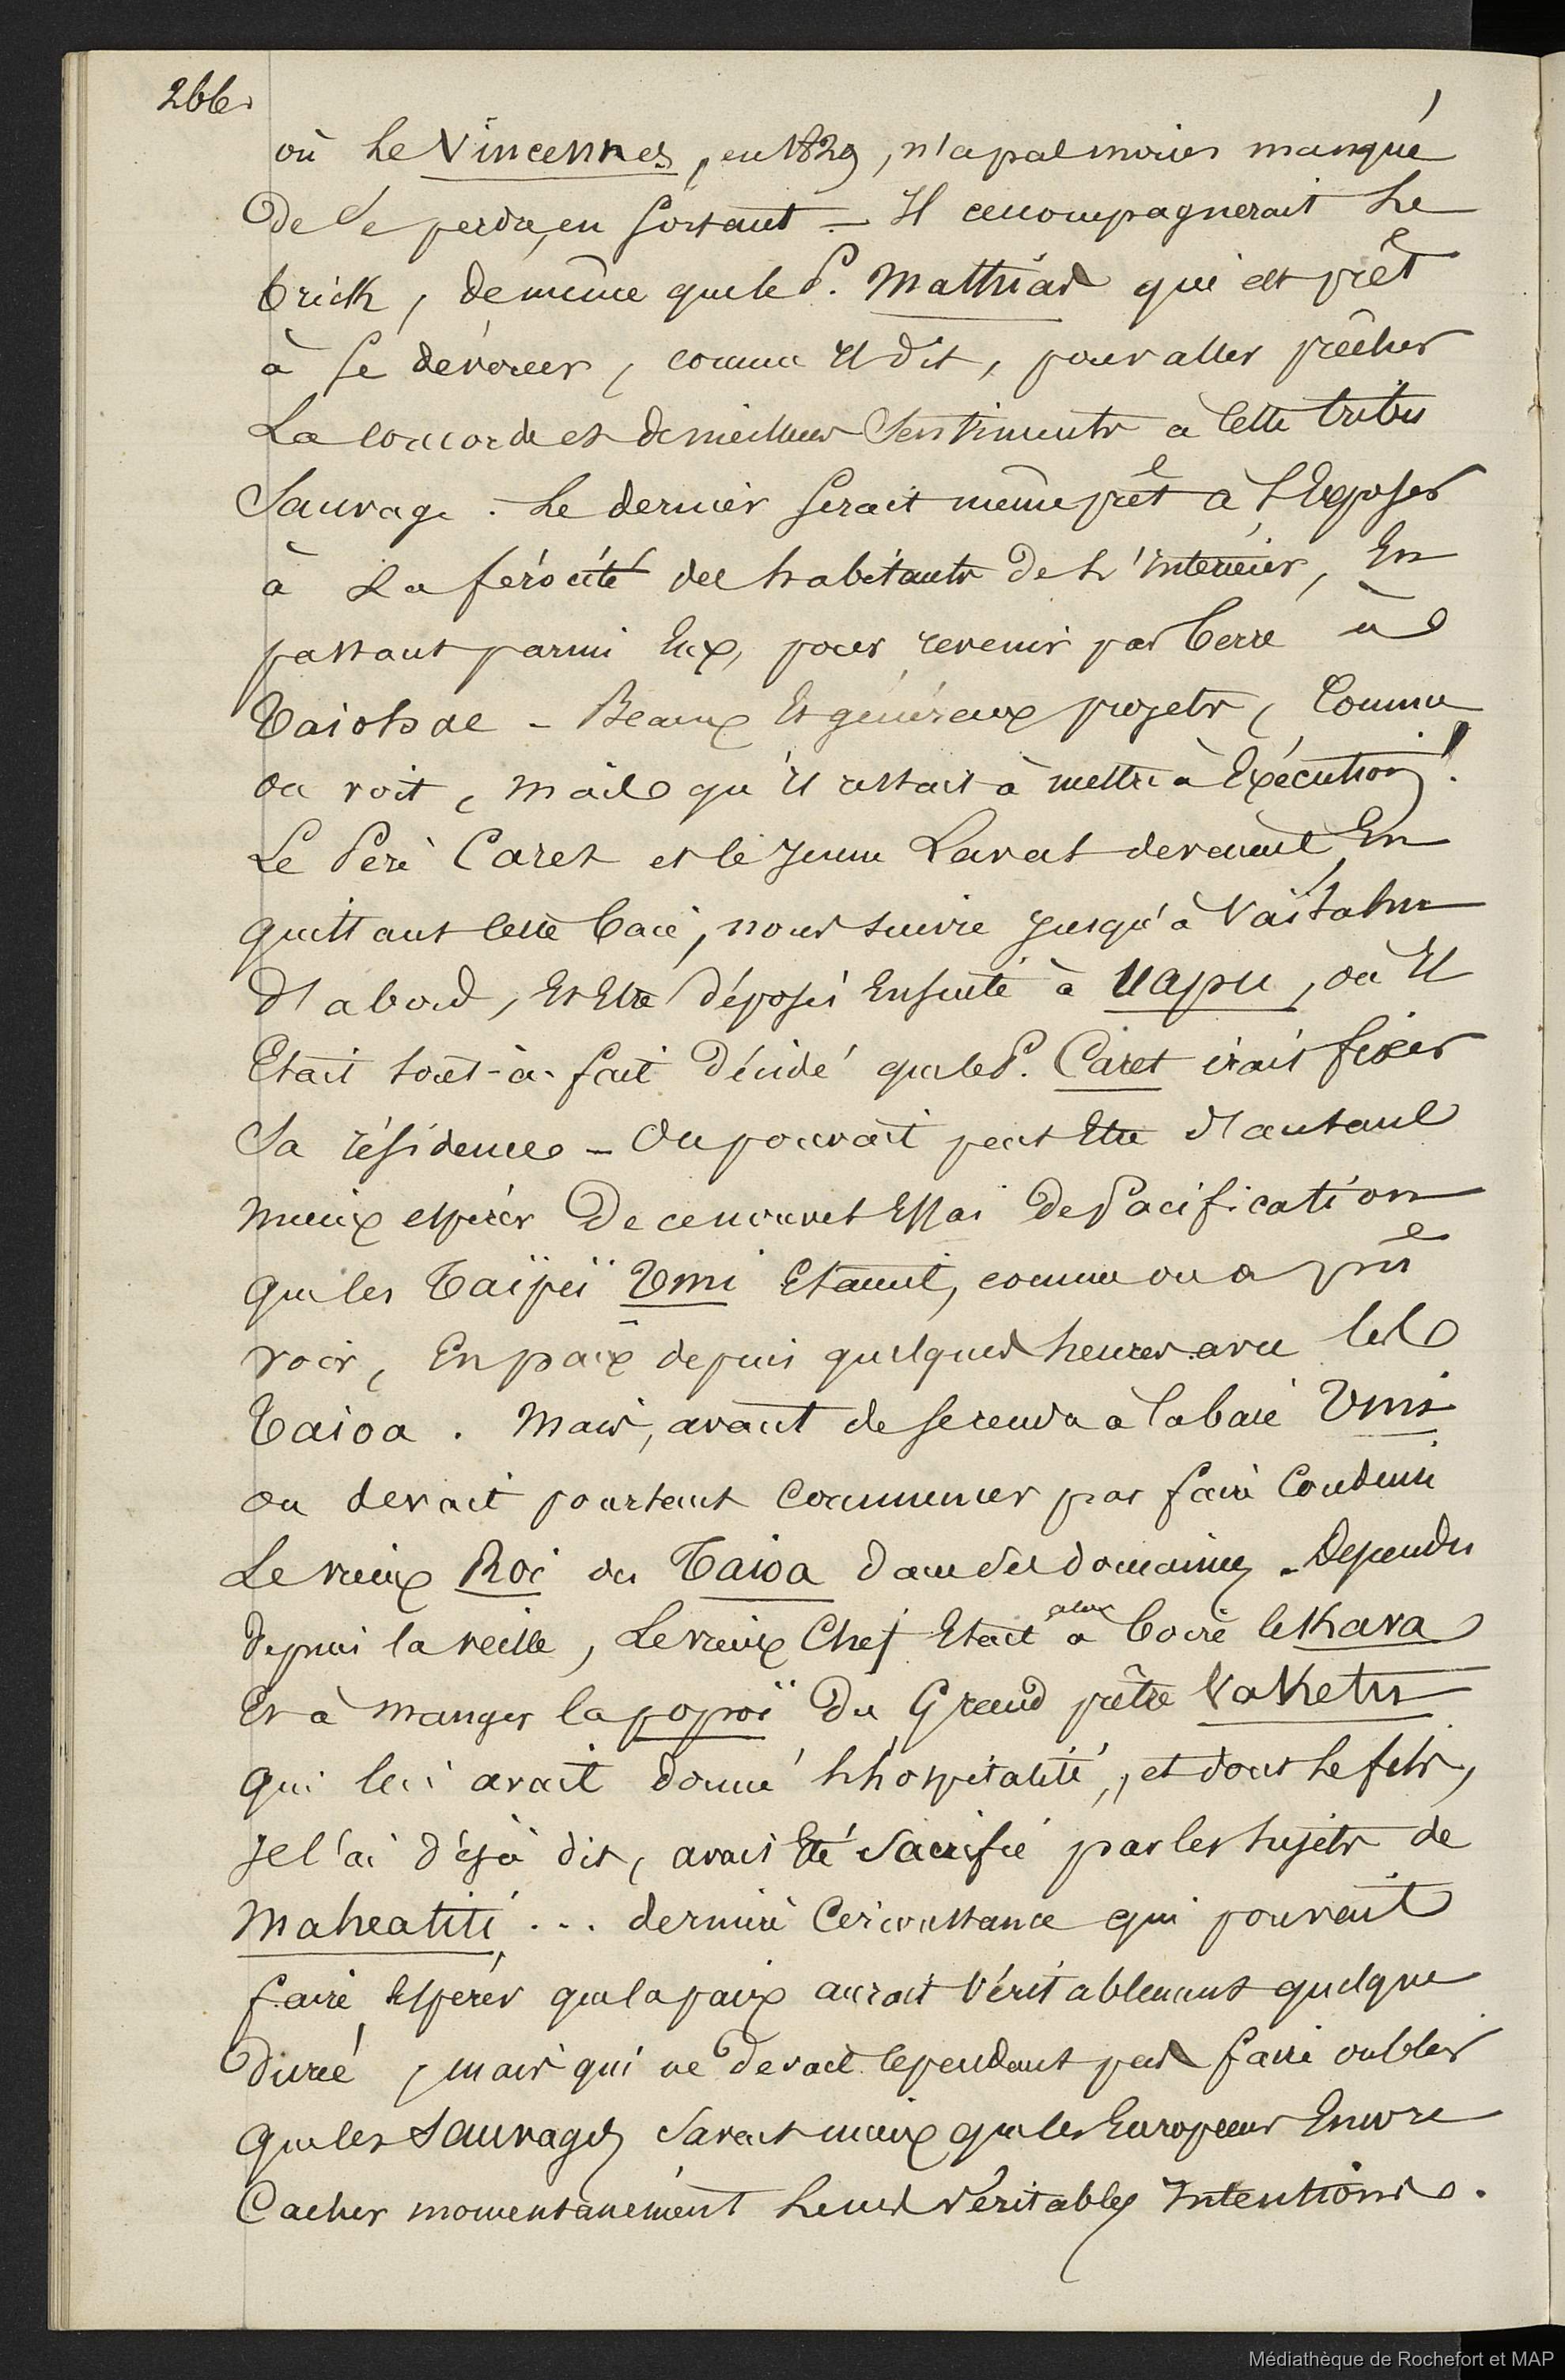 266.
où le Vincennes, en 1829, n'a pas moins manqué
de se perdre, en sortant – Il accompagnerait le
brick, de même que le P. Matthias qui est prêt
à se dévouer, comme il dit, pour aller prêcher
La concorde et de meilleurs sentiments à cette tribu
Sauvage. Le dernier serait même prêt à s'exposer
à la férocité des habitants de l'intérieur, En
passant parmi Eux, pour revenir par terre à
Taiohae – Beaux Et généreux projets, Comme
on voit, mais qu'il restait à mettre à Exécution!
Le Père Caret et le jeune Laval devaient, En
quittant cette baie, nous suivre jusqu'à Vaïtahu
d'abord, Et Etre déposés Ensuite à Uapu, où Il
Etait tout-à-fait décidé que le P. Caret irait fixer
Sa résidence – On pouvait peut Etre d'autant
mieux espérer De ce nouvel Essai De Pacification
que les Taïpii Vmi Etaient, comme on a pu le
voir, En paix depuis quelques heures avec les
Taioa. Mais, avant de se rendre à la baie Vmi
on devait pourtant commencer par faire Conduire
Le vieux Roi des Taioa dans ses domaines –
depuis la veille, Le vieux Chef Etait alors à boire le Kava
Et à manger la popoï Du Grand prêtre Vaketu
qui lui avait donné L'hospitalité, et dont le fils,
je l'ai déjà dit, avait Eté Sacrifié par les sujets de
Maheatité ... dernière Circonstance qui pouvait
faire Espérer que la paix aurait Véritablement quelque
Durée, mais qui ne devait cependant pas faire oublier
que les Sauvages Savent mieux que les Européens Encore
Cacher momentanément Leurs Véritables Intentions.
Médiathèque de Rochefort et MAP